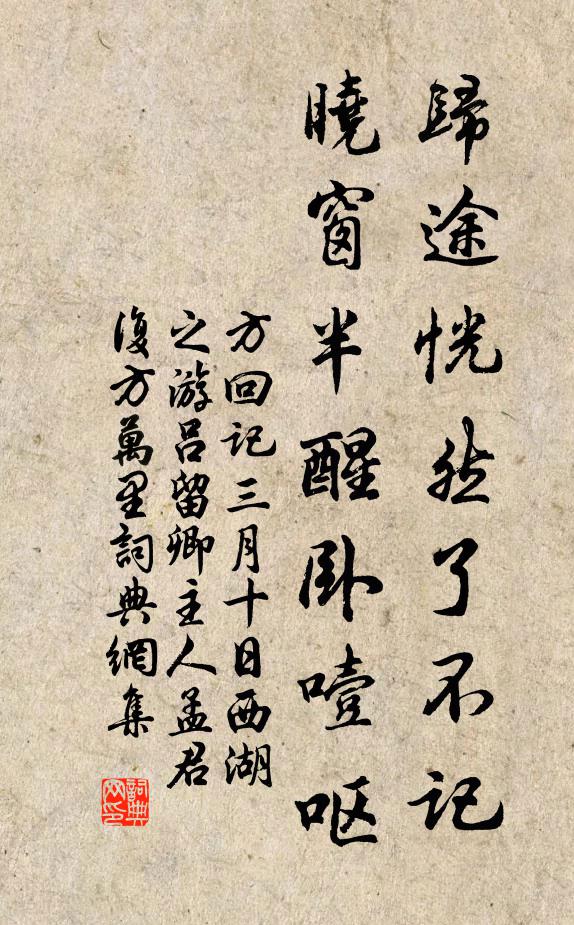 歸途恍然了不記
曉窗半醒臥噎呕
方回記三月十日西湖
之游呂留卿主人孟君
復方萬里詞典網集
詞典
网印